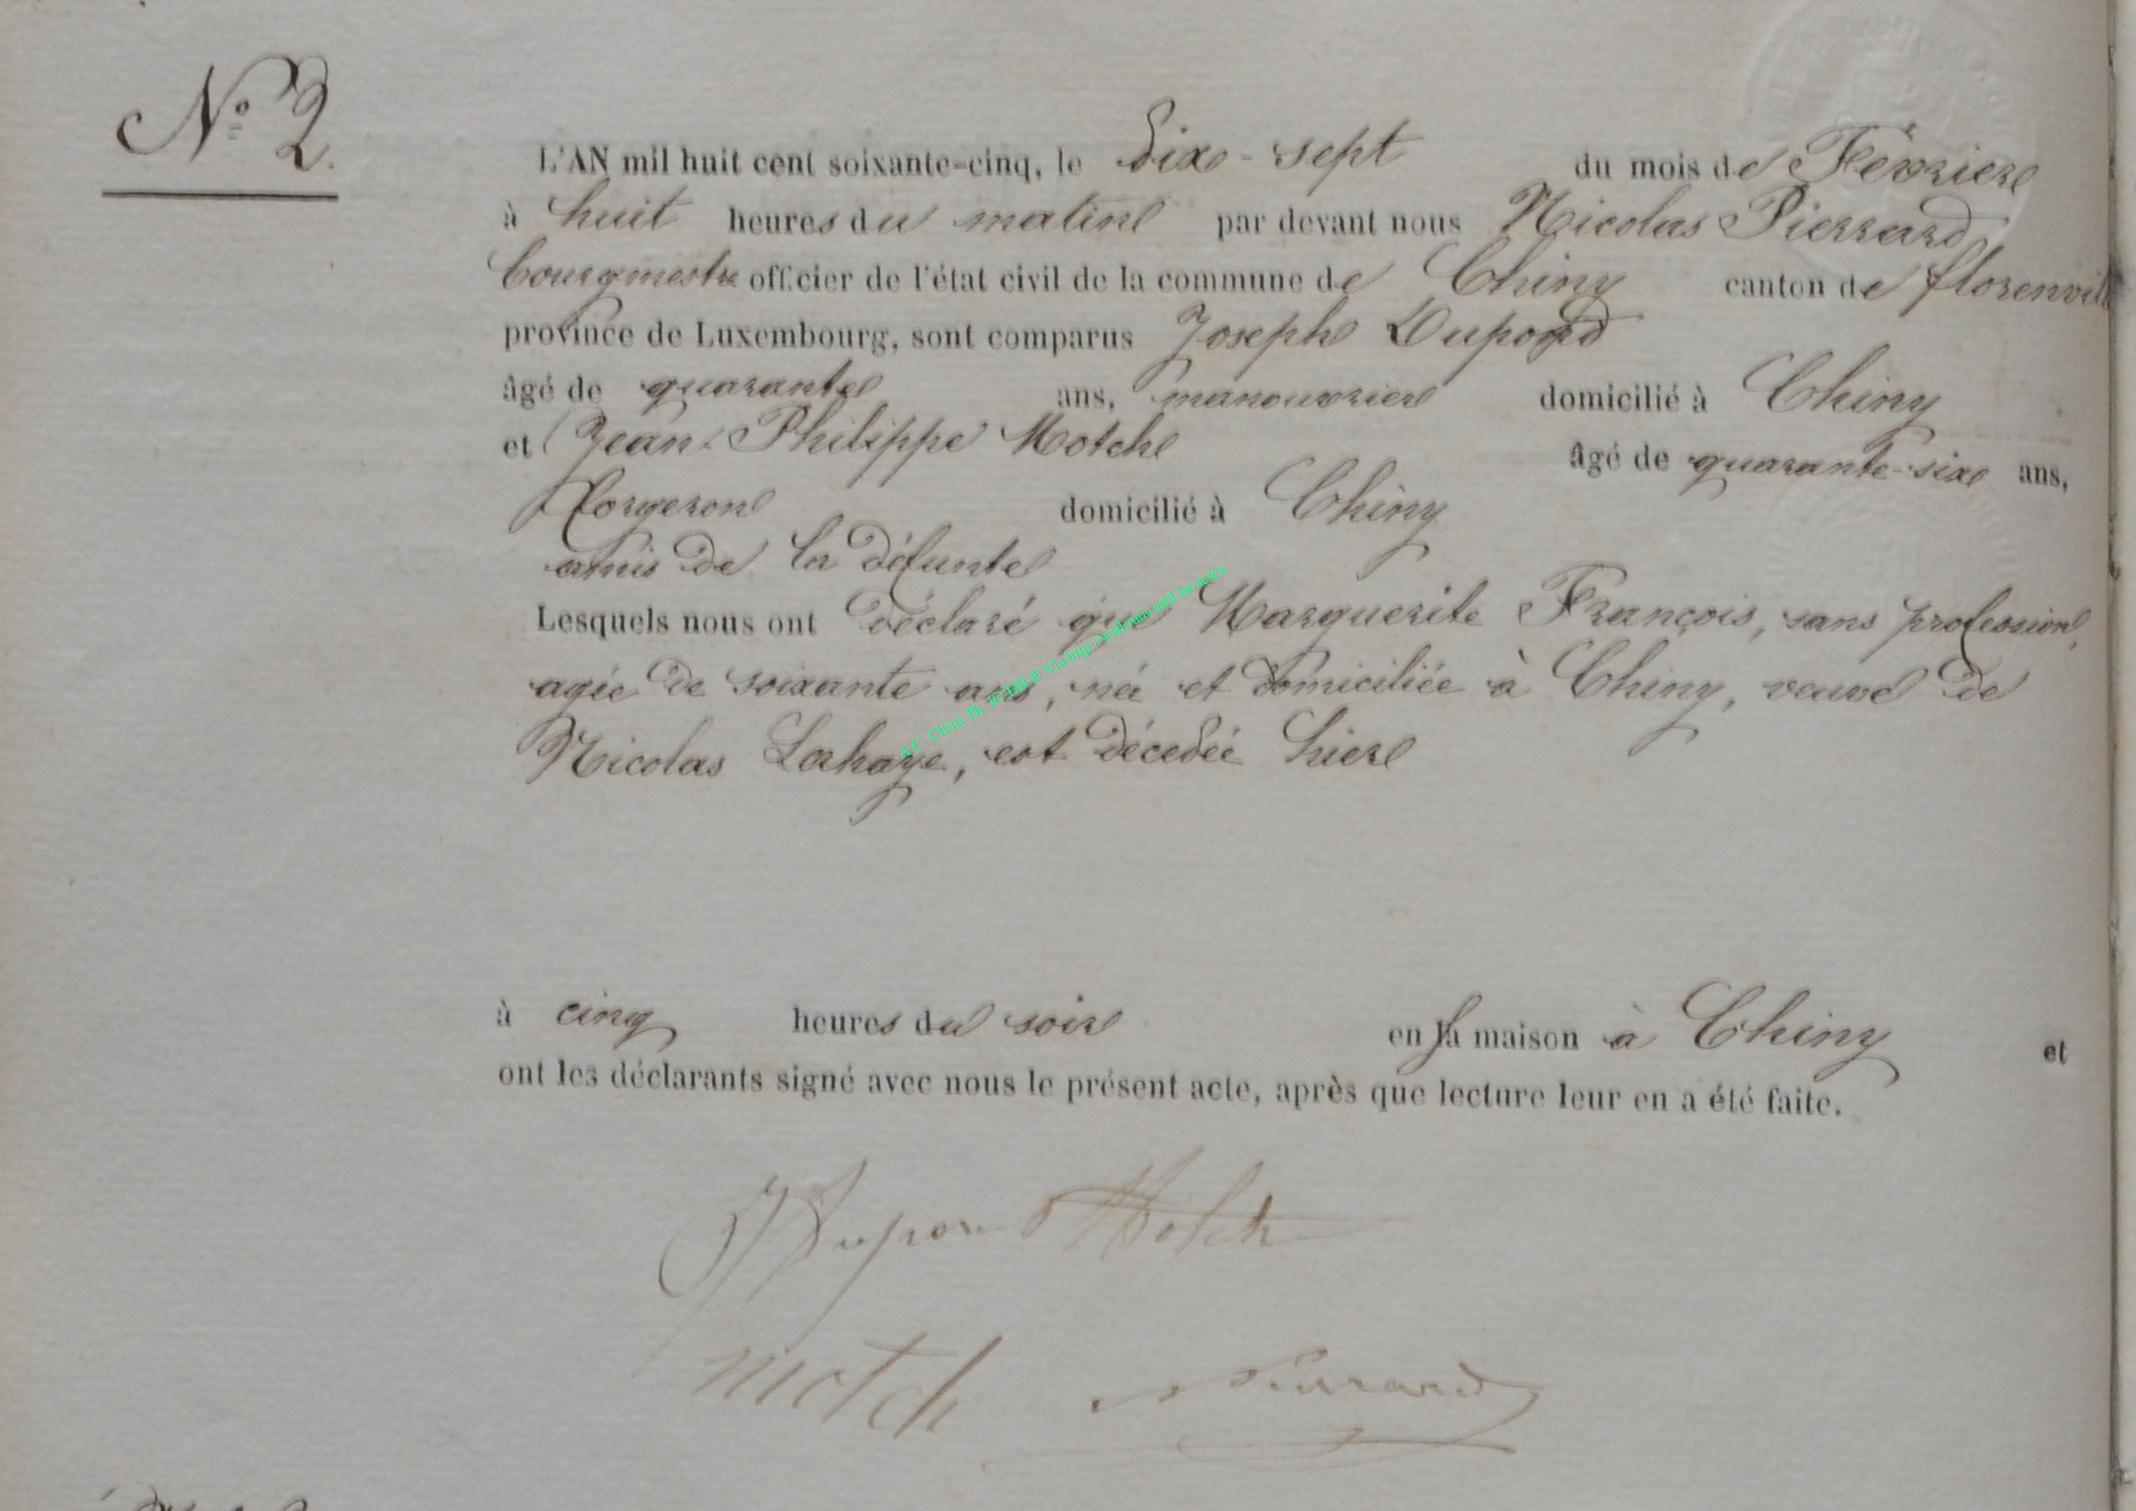 N° 2.
L'AN mil huit cent soixante-cinq, le Dix-sept du mois de Février
à huit heures du matin par devant nous Nicolas Pierrard
bourgmestre officier de l'état civil de la commune de Chiny canton de florenville
province de Luxembourg, sont comparus Joseph Dupond
âgé de quarante ans, manouvrier domicilié à Chiny
et Jean Philippe Motch âgé de quarante-six ans,
forgeron domicilié à Chiny
amis de la défunte
Lesquels nous ont déclaré que Marguerite François, sans profession,
agée de soixante ans, née et domiciliée à Chiny, veuve de
Nicolas Lahaye, est décedée hier
à cinq heures du soir en sa maison à Chiny et
ont les déclarants signé avec nous le présent acte, après que lecture leur en a été faite.
J Dupond Motch
motch Pierrard